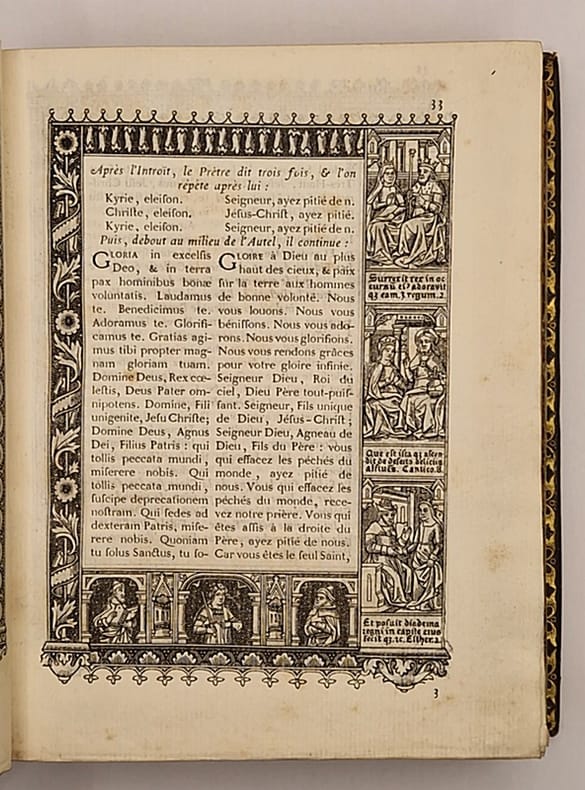 33
Après l'Introït, le Prêtre dit trois fois, & l'on
répète après lui :
Kyrie, eleison. Seigneur, ayez pitié de n.
Christe, eleison. Jésus-Christ, ayez pitié.
Kyrie, eleison. Seigneur, ayez pitié de n.
Puis, debout au milieu de l'Autel, il continue :
GLORIA in excelsis
Deo, & in terra
pax hominibus bonæ
voluntatis. Laudamus
te. Benedicimus te.
Adoramus te. Glorifi-
camus te. Gratias agi-
mus tibi propter mag-
nam gloriam tuam.
Domine Deus, Rex cœ-
lestis, Deus Pater om-
nipotens. Domine, Fili
unigenite, Jesu Christe;
Domine Deus, Agnus
Dei, Filius Patris : qui
tollis peccata mundi,
miserere nobis. Qui
tollis peccata mundi,
suscipe deprecationem
nostram. Qui sedes ad
dexteram Patris, mise-
rere nobis. Quoniam
tu solus Sanctus, tu so-
GLOIRE à Dieu au plus
haut des cieux, & paix
sur la terre aux hommes
de bonne volonté. Nous
vous louons. Nous vous
bénissons. Nous vous ado-
rons. Nous vous glorifions.
Nous vous rendons grâces
pour votre gloire infinie.
Seigneur Dieu, Roi du
ciel, Dieu Père tout-puis-
sant. Seigneur, Fils unique
de Dieu, Jésus-Christ;
Seigneur Dieu, Agneau de
Dieu, Fils du Père : vous
qui effacez les péchés du
monde, ayez pitié de
nous. Vous qui effacez les
péchés du monde, rece-
vez notre prière. Vous qui
êtes assis à la droite du
Père, ayez pitié de nous.
Car vous êtes le seul Saint,
Surrexit rex in oc
cursū ei⁹ adoravit
q3 eam. 3. regum. 2.
Que est ista q3 ascen
dit de deserto deliciis
affluēs. Cantico. 8.
Et posuit diadema
regni in capite eius
fecit q3. ⁊c. Esther. 2.
3